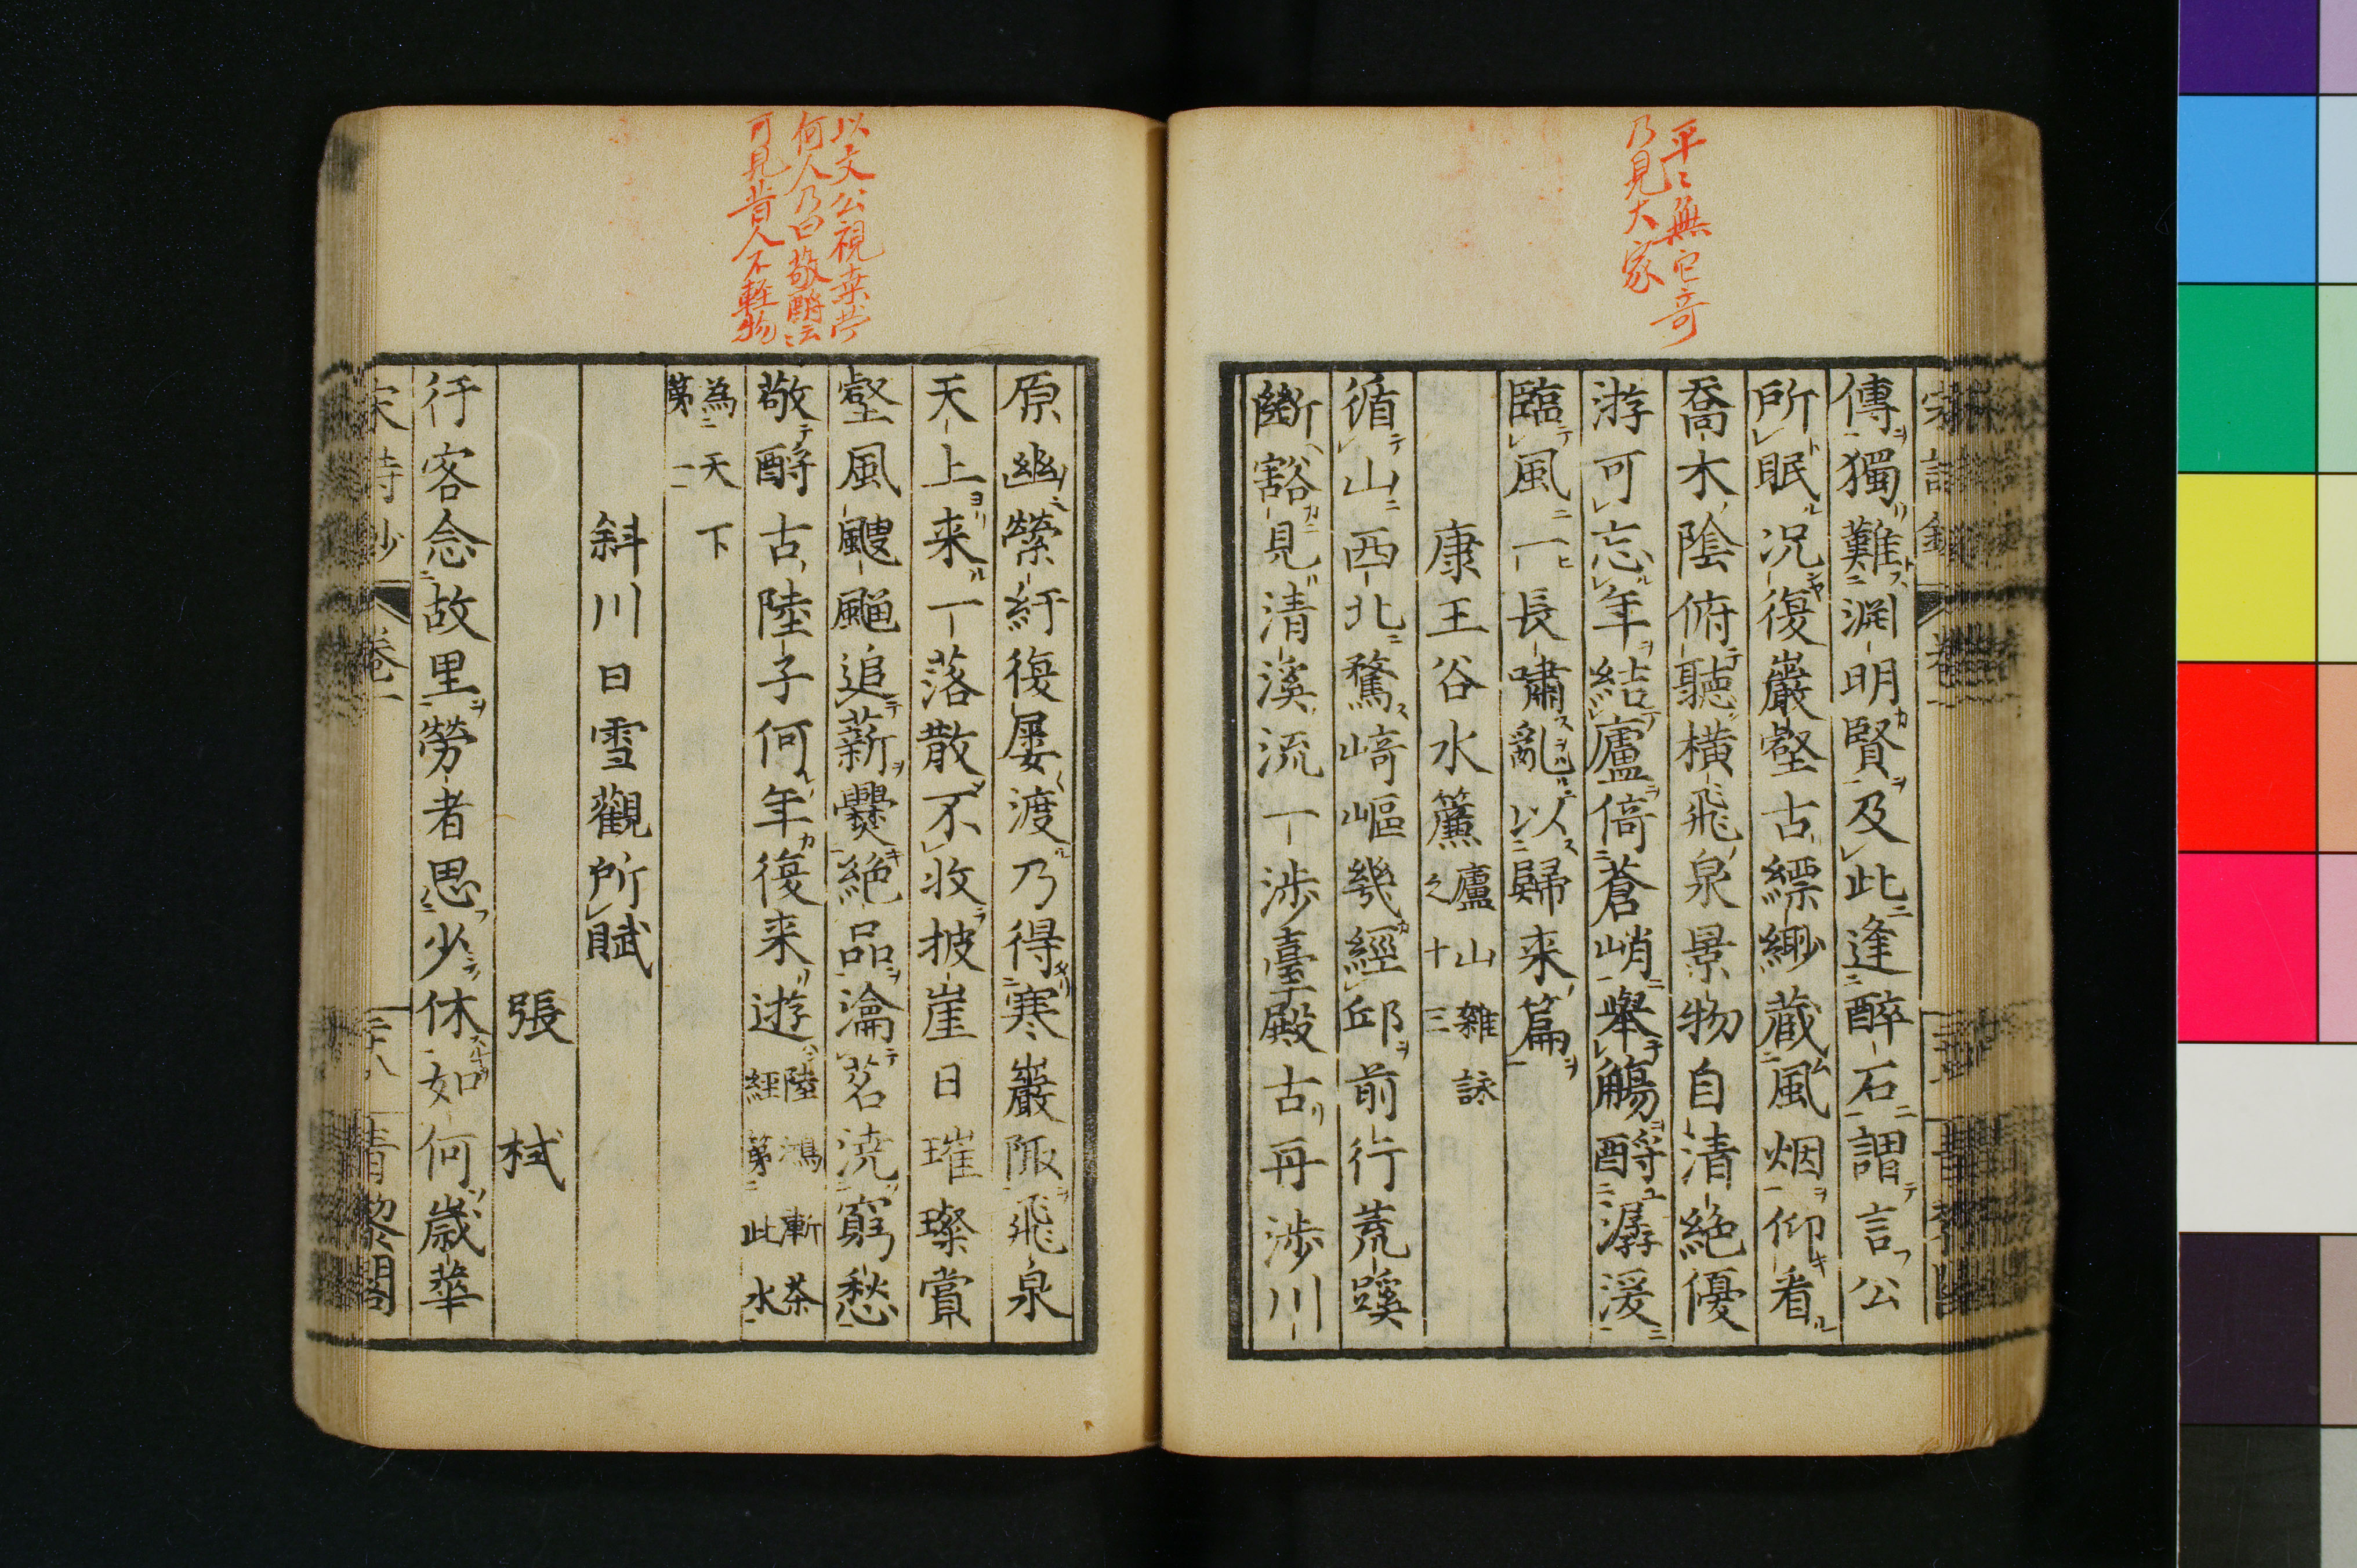 平〻無它奇
乃見大家
傳獨難淵明賢及此逢醉石謂言公
所眠況復巖壑古縹緲蔵風烟仰看
喬木陰俯聽横飛泉景物自清絶優
游可忘年結廬倚蒼峭舉觴酹潺湲
臨風一長嘯亂以歸来篇
康王谷水簾廬山雜詠之十三
循山西北騖崎嶇幾經邱前行荒蹊
斷豁見清溪流一渉臺殿古再渉川
以文公視桒苧
何人乃曰敬酹云〻
可見昔人不軽物
原幽縈紆復屡渡乃得寒巖陬飛泉
天上来一落散不收披崖日璀璨賞
壑風颼飀追薪爨絶品瀹茗澆窮愁
敬酹古陸子何年復来遊陸鴻漸茶經第此水
為天下第一
斜川日雪觀所賦
張栻
行客念故里勞者思少休如何歲華
宋詩鈔 卷一 青黎閣